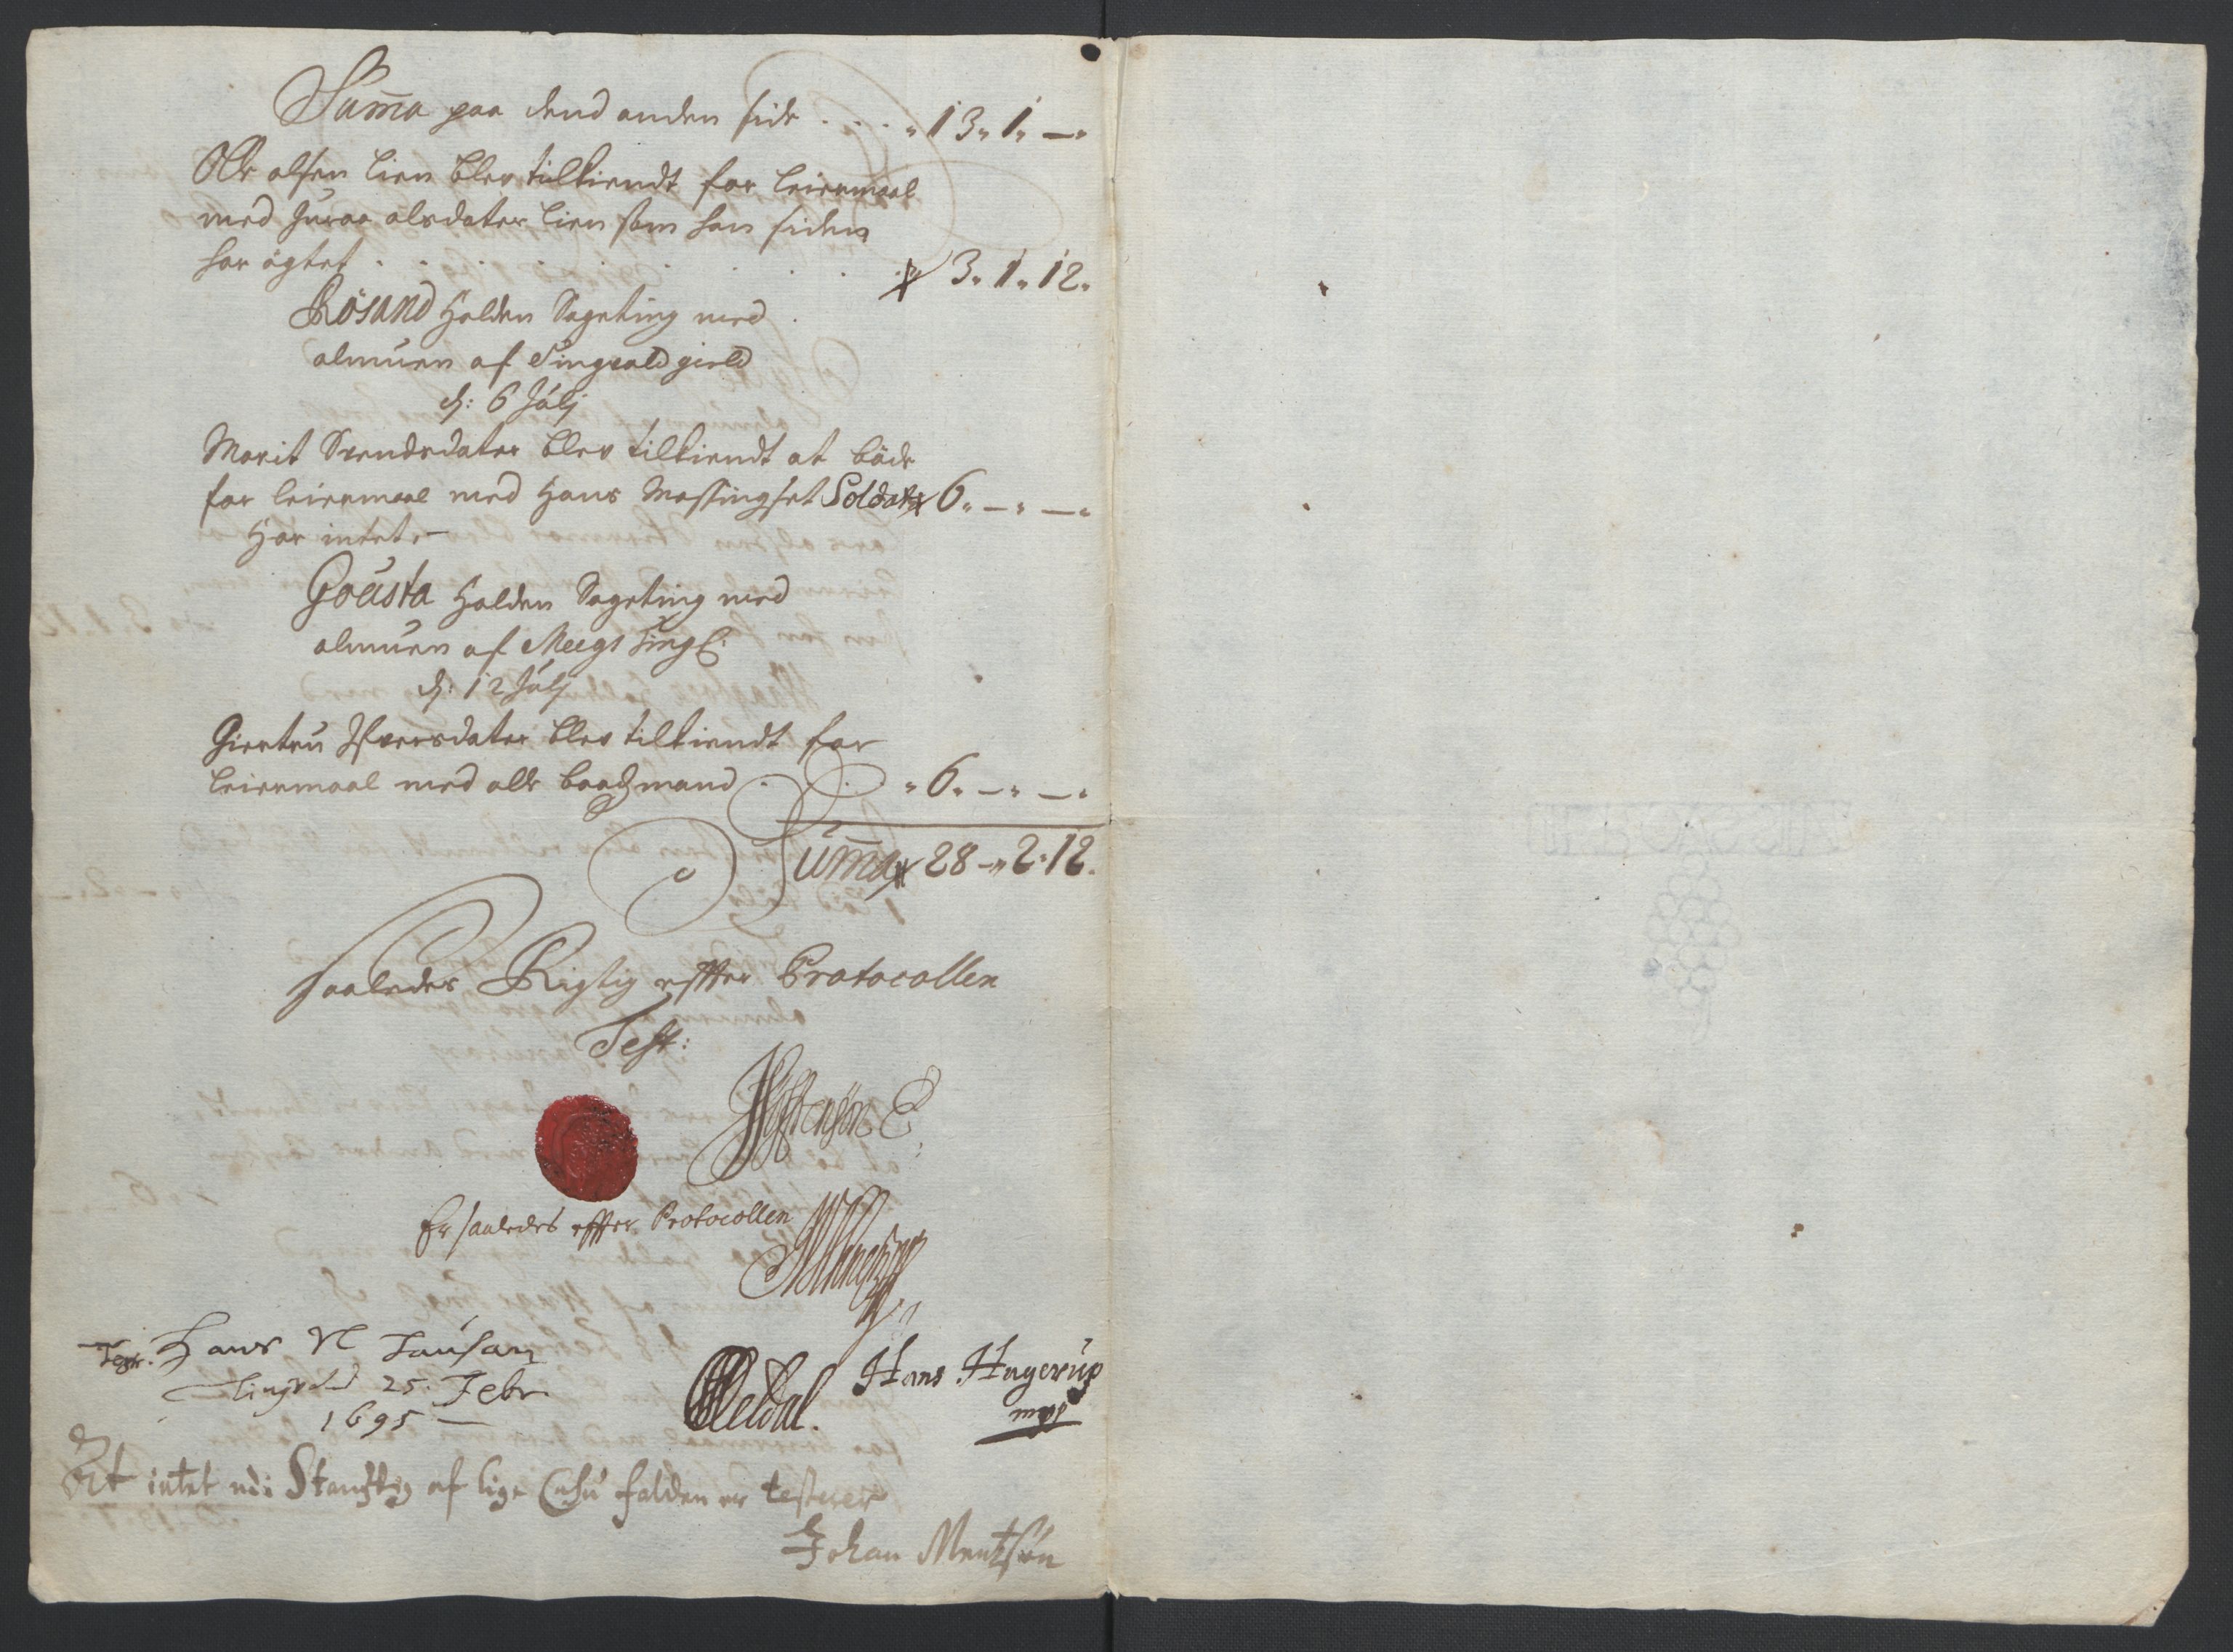 Summa paa dend anden side . . . „ 13„ 1„ —„
Olle olsen Lien blev tilkiendt for Leiermaal
med Guroe olsdater Lien som han siden
har ägtet . . . . . . . 3„ 1„ 12„
Rösand Holden Sageting med
almuen af Tingvold gield
d: 6 Julj
Marit Svendsdater blev tilkiendt at böde
for leiermaal med Hans Massingset Soldat 6„ —„ —„
Har intet —
Gousta Holden Sageting med
almuen af
d: 12 Julj
Giertru Ifversdater blev tilkiendt for
Leiermaal med olle baadzmand . . . „ 6„ —„ —„
Summa 28 —„ 2„ 12„
saaledes Rigtig effter Protocollen
Test:
Er saaledes effter Protocollen
Test. Hans Tausan
Tingvold 25. Febr.
1695 —
Hans Hagerup
mpp
At intet udi af lige falden er testerer
Johan Mentzsön